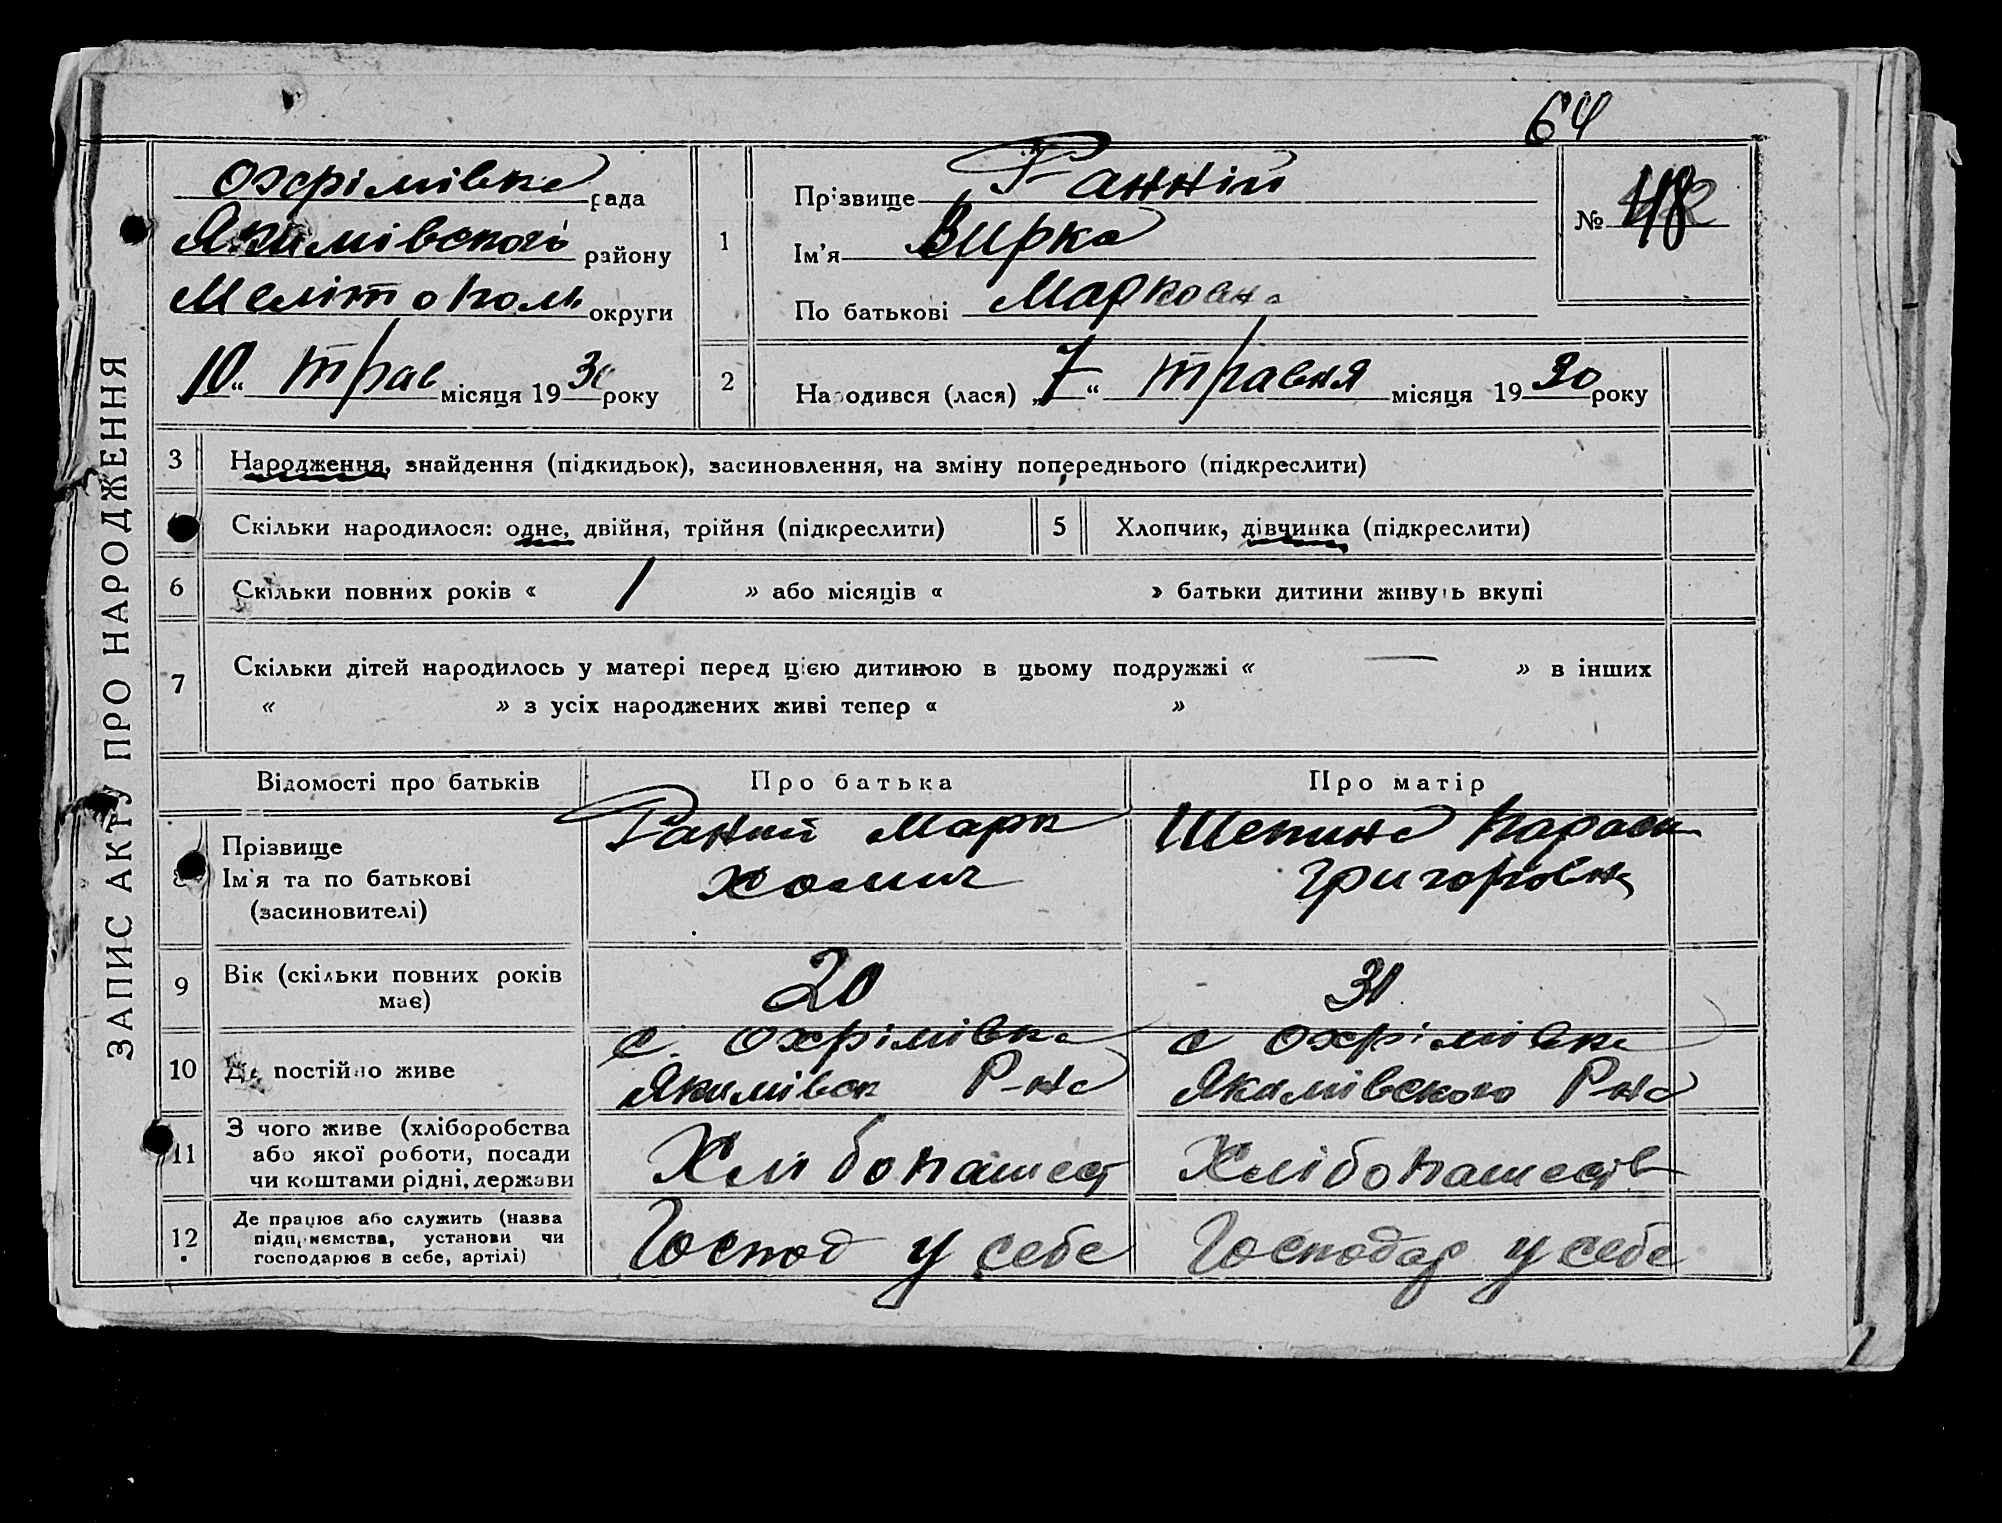 64
ЗАПИС АКТУ ПРО НАРОДЖЕННЯ
Охрімівка рада
Якимівского району
Мелітополь округи
10 " трав місяця 1930 року
1
Прізвище Ранній
Ім'я Вирка
По батькові Марковна
№ 48
2
Народився (лася) „7" травня місяця 1930 року
3 Народження, знайдення (підкидьок), засиновлення, на зміну попереднього (підкреслити)
Скільки народилося: одне, двійня, трійня (підкреслити) 5 Хлопчик, дівчинка (підкреслити)
6 Скільки повних років « 1 » або місяців « » батьки дитини живуть вкупі
7 Скільки дітей народилось у матері перед цією дитиною в цьому подружжі « — » в інших
« » з усіх народжених живі тепер « »
Відомості про батьків Про батька Про матір
8 Прізвище
Ім'я та по батькові
(засиновителі)
Раний Марк
Хомич
Шепина Параск
Григоровна
9 Вік (скільки повних років
має)
20
31
10 Де постійно живе
с. Охрімівка
Якимівск Р-на
с Охрімівка
Якимівского Р-на
11 З чого живе (хліборобства
або якої роботи, посади
чи коштами рідні, держави
Хлібопашест
Хлібопашеств
12 Де працює або служить (назва
підприємства, установи чи
господарює в себе, артілі)
Господ у себе
Господар у себе